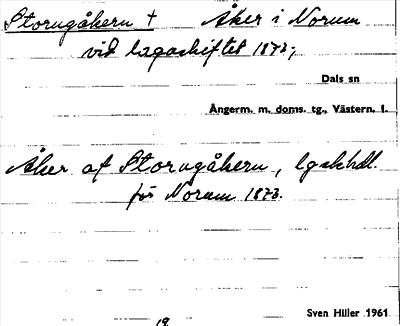 Storugåkern + Åker i Norum
vid lagaskiftet 1873;
Dals sn
Ångerm. m. doms. tg., Västern. l.
Åker af Storugåkern, lgskhdl.
för Norum 1873.
Sven Hiller 1961